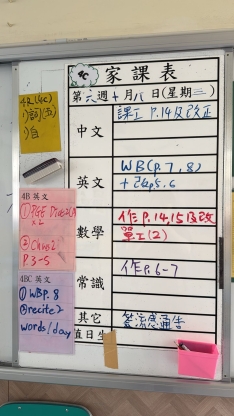 家課表
第六週十月八日(星期三)
4R(4C)
1)詞(五)
2)自
中文
課工 P.14及改正
英文
WB(P.7, 8)
數學
作P.14,15及改
單工(2)
4B 英文
P.3-5
常識
作P.6-7
4BC 英文
① WBP. 8
②recite2
words/day
其它
簽流感通告
值日生